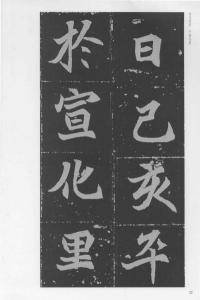 日己亥卒
於宣化里